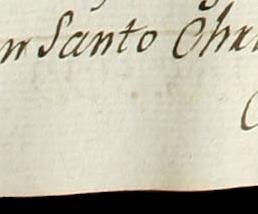 n Santo Chri